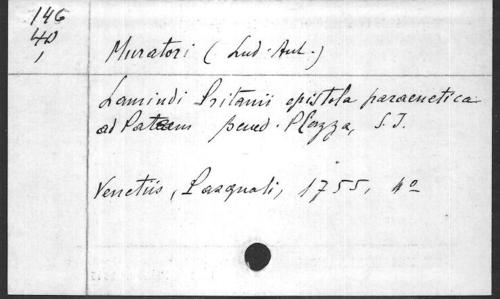 146
4D
,
Muratori (Lud. Ant.)
Lamindi Pritanii epistola paraenetica
ad Patrem Bened. Plazza, S. J.
Venetiis, Pasquali, 1755, 4º